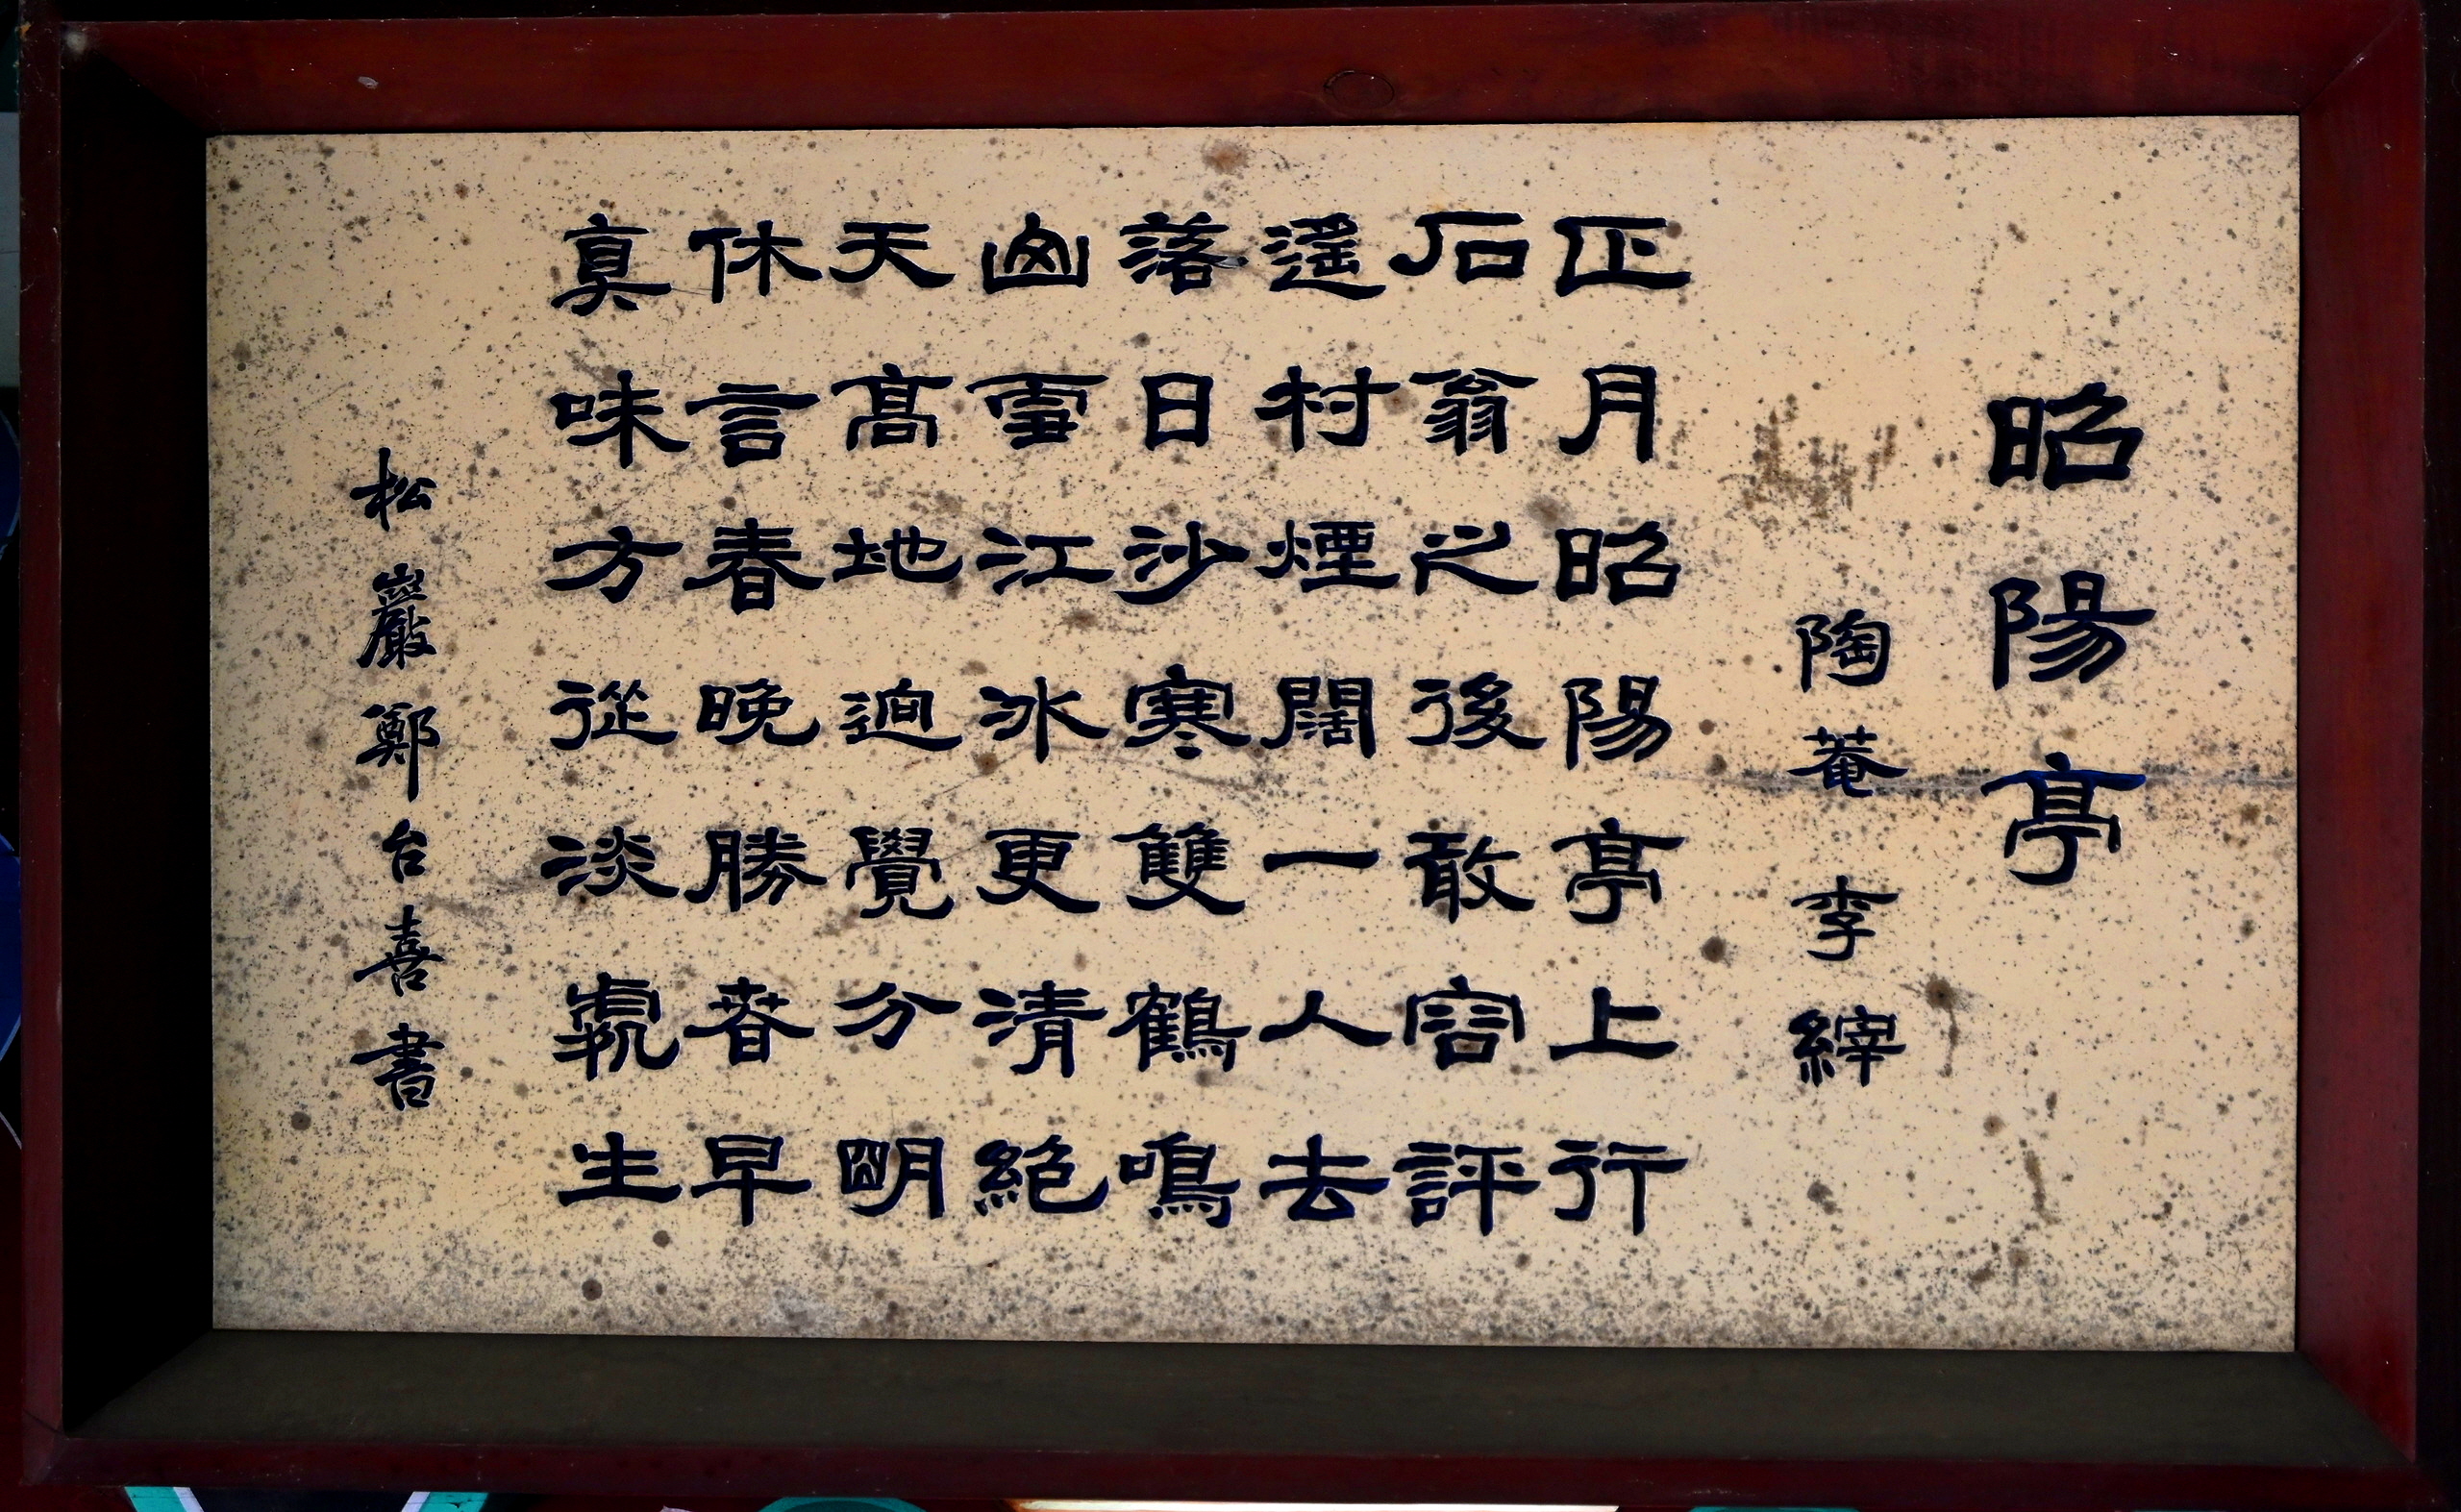 昭陽亭
陶菴 李縡
正月昭陽亭上行
石翁之後敢容評
遙村煙闊一人去
落日沙寒雙鶴鳴
山雪江冰更清絶
天高地逈覺分明
休言春晩勝春早
眞味方從淡處生
松巖鄭台喜書